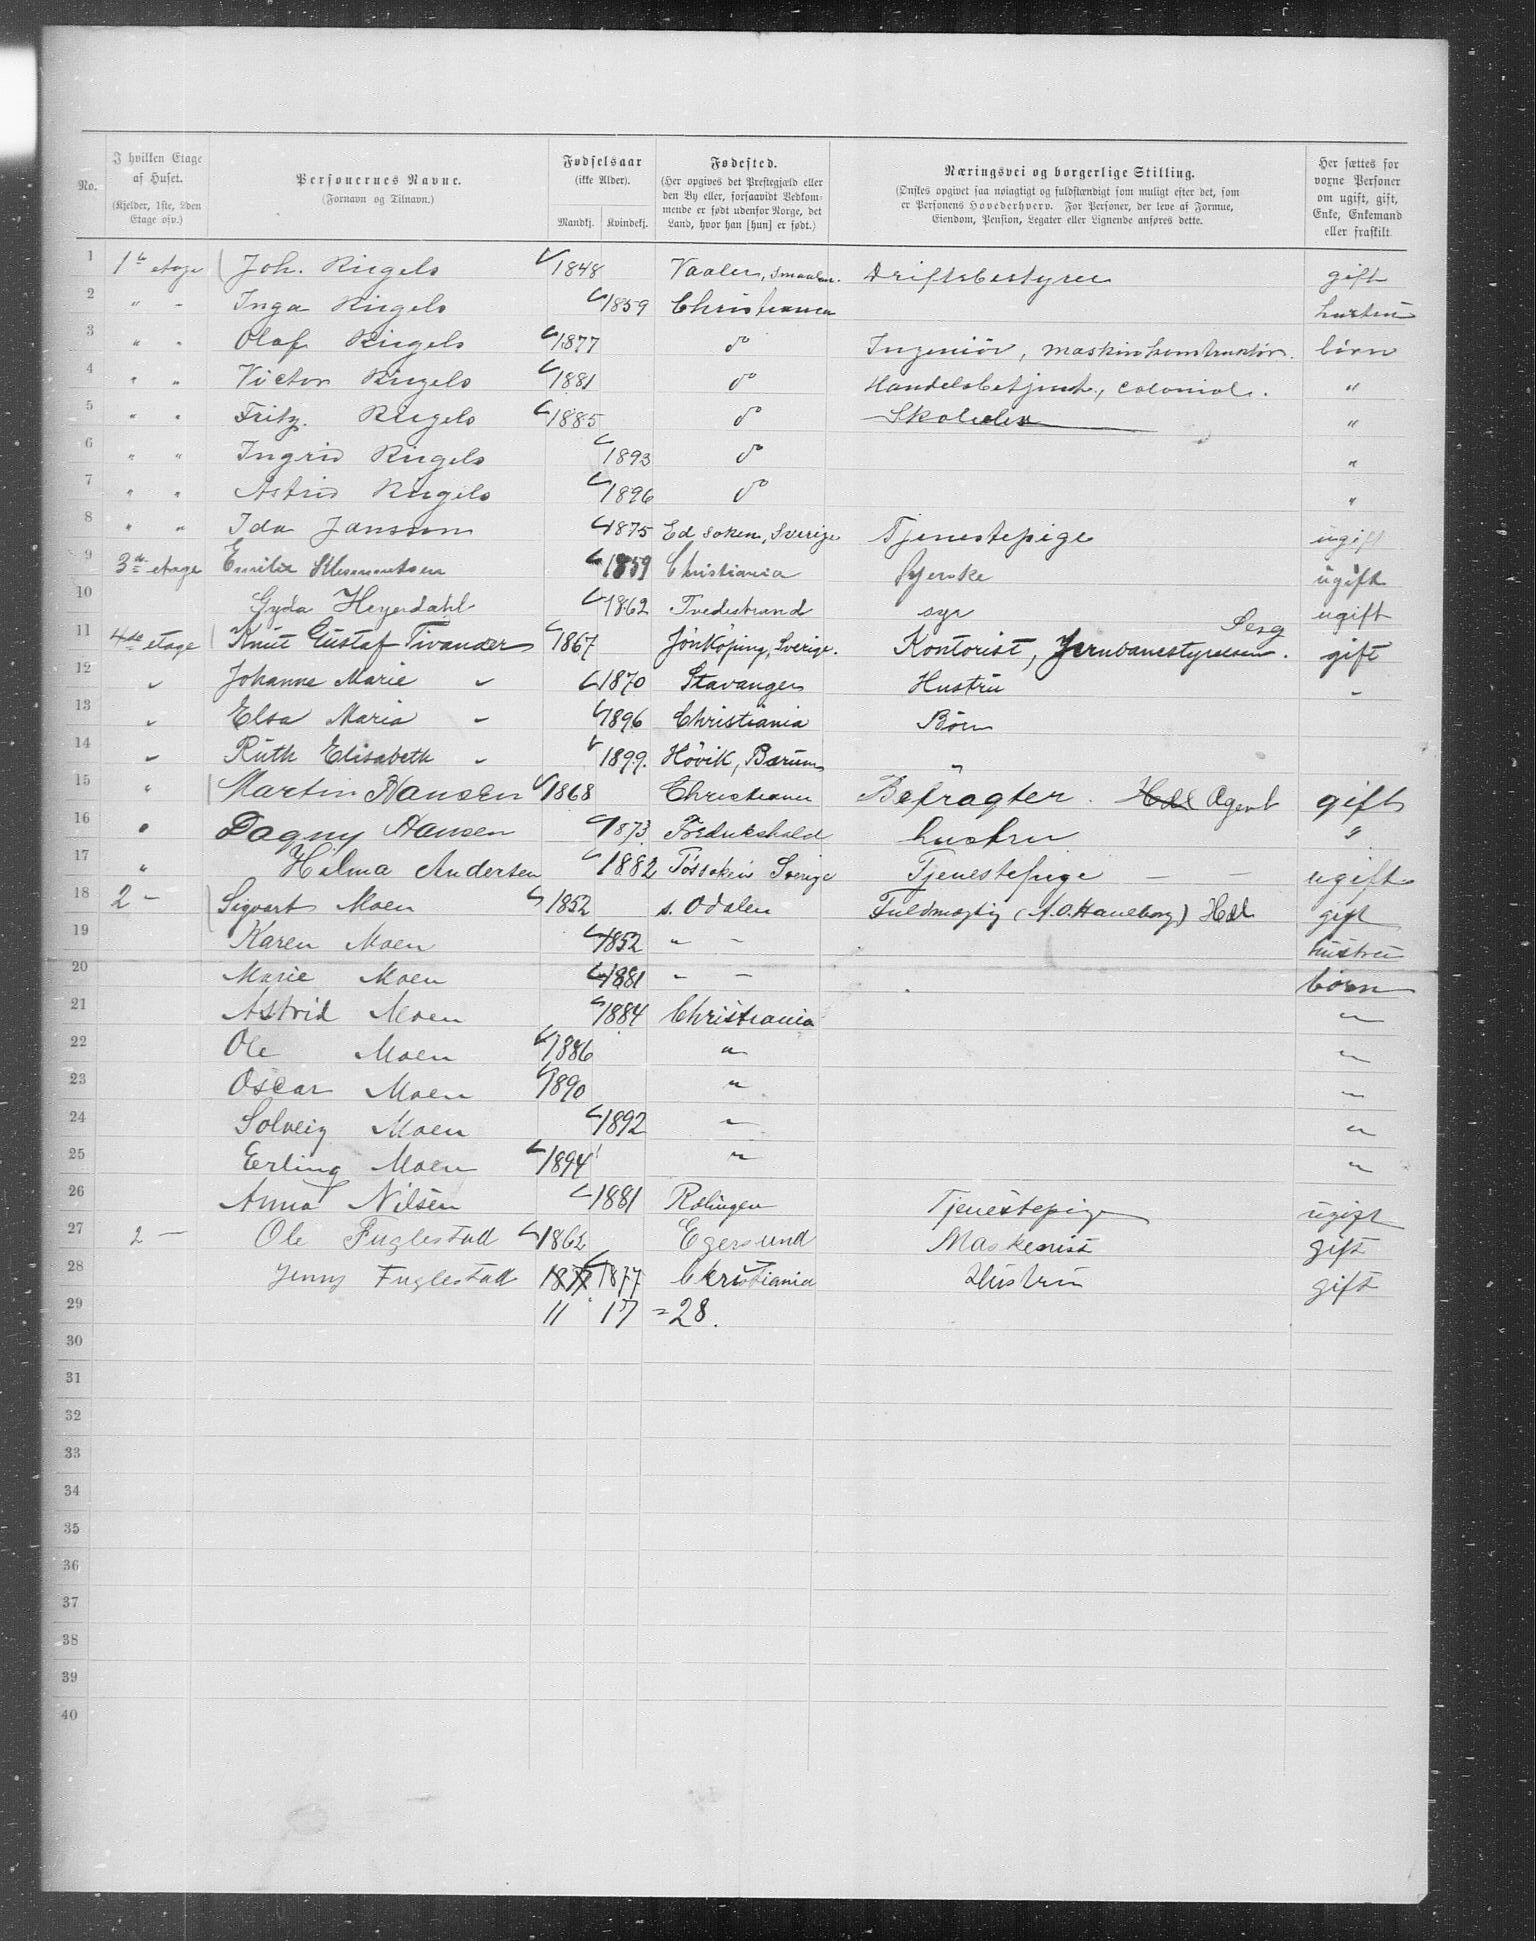 No. | I hvilken Etage af Huset. (Kjelder, 1ste, 2den Etage osv.) | Personernes Navne. (Fornavn og Tilnavn.) | Fødselsaar (ikke Alder). Mandkj. | Kvindekj. | Fødested. (Her opgives det Prestegjæld eller den By eller, forsaavidt Vedkommende er født udenfor Norge, det Land, hvor han [hun] er født.) | Næringsvei og borgerlige Stilling. (Ønskes opgivet saa nøiagtigt og fuldstændigt som muligt efter det, som er Personens Hovederhverv. For Personer, der leve af Formue, Eiendom, Pension, Legater eller Lignende anføres dette. | Her sættes for vorne Personer om ugift, gift, Enke, Enkemand eller fraskilt.
1 1ste etage Joh. Ringels 1848 Vaaler, Smaalen. Driftsbestyrer gift
2 " - Inga Ringels 1859 Christiania hustru
3 " " Olaf Ringels 1877 do Ingeniör, maskinkonstruktør. börn
4 " " Victor Ringels 1881 do Handelsbetjent, colonial. "
5 " " Fritz Ringels 1885 do Skoleelev "
6 " " Ingrid Ringels 1893 do "
7 " " Astrid Ringels 1896 do "
8 " " Ida Jansson 1875 Ed soken, Sverige Tjenestepige ugift
9 3die etage Emilie Klemmentsen 1859 Christiania Syerske ugift
10 Gyda Heyerdahl 1862 Tvedestrand syr ugift
11 4de etage Knut Gustaf Tivander 1867 Jönköping, Sverige. Kontorist, Jernbanestyrelsen. gift
12 " Johanne Marie " 1870 Stavanger Hustru "
13 " Elsa Maria " 1896 Christiania Börn
14 " Ruth Elisabeth " 1899. Hövik, Bærum "
15 " Martin Hansen 1868 Christiania Befragter. Hdl Agent gift
16 " Dagny Hansen 1873 Fredrikshald hustru "
17 " Hilma Andersen 1882 Tössoken Sverige Tjenestepige — — ugift
18 2 — Sigvart Moen 1852 s. Odalen Fuldmægtig (A.O. Haneborg) Hdl gift
19 Karen Moen 1852 " - hustru
20 Marie Moen 1881 " - börn
21 Astrid Moen 1884 Christiania "
22 Ole Moen 1886 " "
23 Oscar Moen 1890 " "
24 Solveig Moen 1892 " "
25 Erling Moen 1894 " "
26 Anna Nilsen 1881 Rælingen Tjenestepige ugift
27 2 — Ole Fuglestad 1862 Egersund Maskenist gift
28 Jenny Fuglestad 1877 1877 Christiania Hustru gift
29 11 17 = 28.
30
31
32
33
34
35
36
37
38
39
40